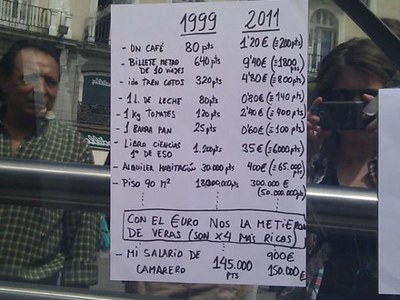 1999 2011
- UN CAFÉ 80 pts 1'20€ (=200pts)
- BILLETE METRO DE 10 VIAJES 640 pts 9'40€ (=1800 pts)
- ida TREN COTOS 320 pts 4'80€ (=800pts)
- 1 L. DE LECHE 80pts 0'80€ (=140 pts)
- 1 Kg TOMATES 120 pts 2'40€ (=400 pts)
- 1 BARRA PAN 25 pts 0'60€ (=100 pts)
- LIBRO CIENCIAS 1º DE ESO 1.200 pts 35€ (=6000 pts)
- ALQUILER HABITACIÓN 30.000 pts 400€ (=65.000 pts)
- PISO 90 M² pts 300.000 € (50.000.000 pts)
CON EL €URO NOS LA METIERON
DE VERAS (SON x4 MÁS RICOS)
- MI SALARIO DE CAMARERO 145.000 PTS 900€ 150.000